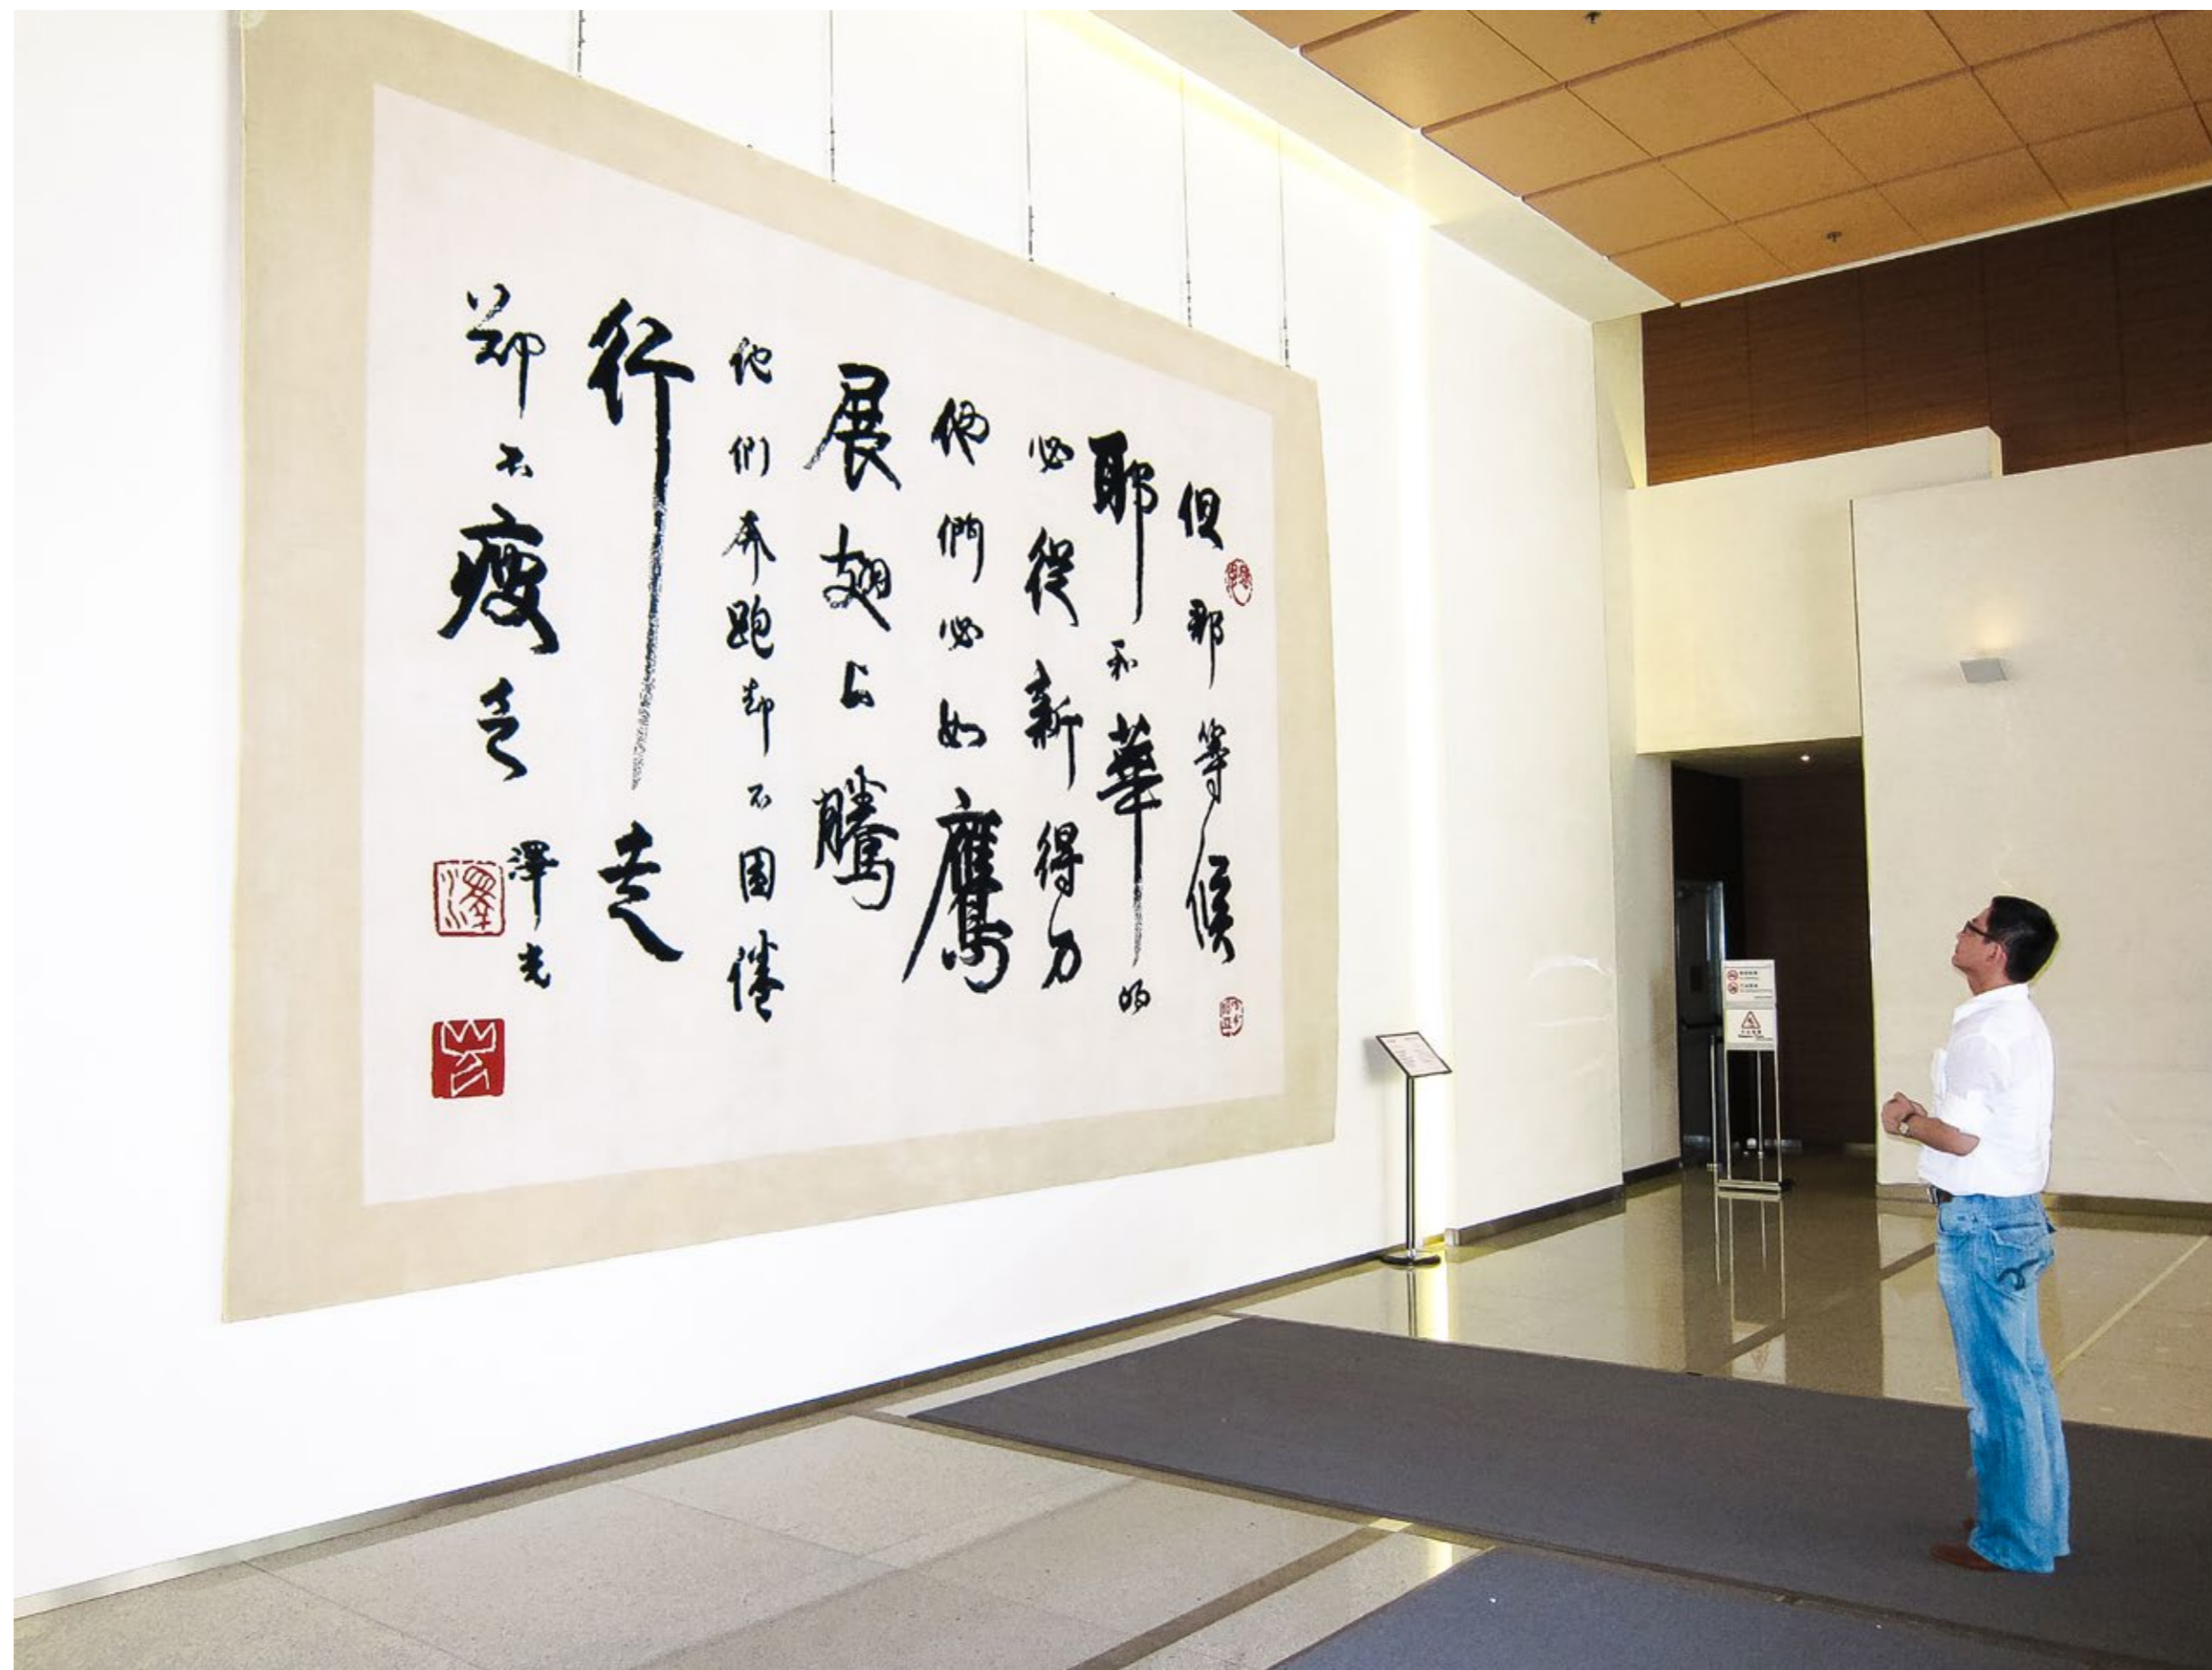 但那等候
耶和華的
必從新得力
他們必如鷹
展翅上騰
他們奔跑却不困倦
行走
卻不疲乏
澤光
澤